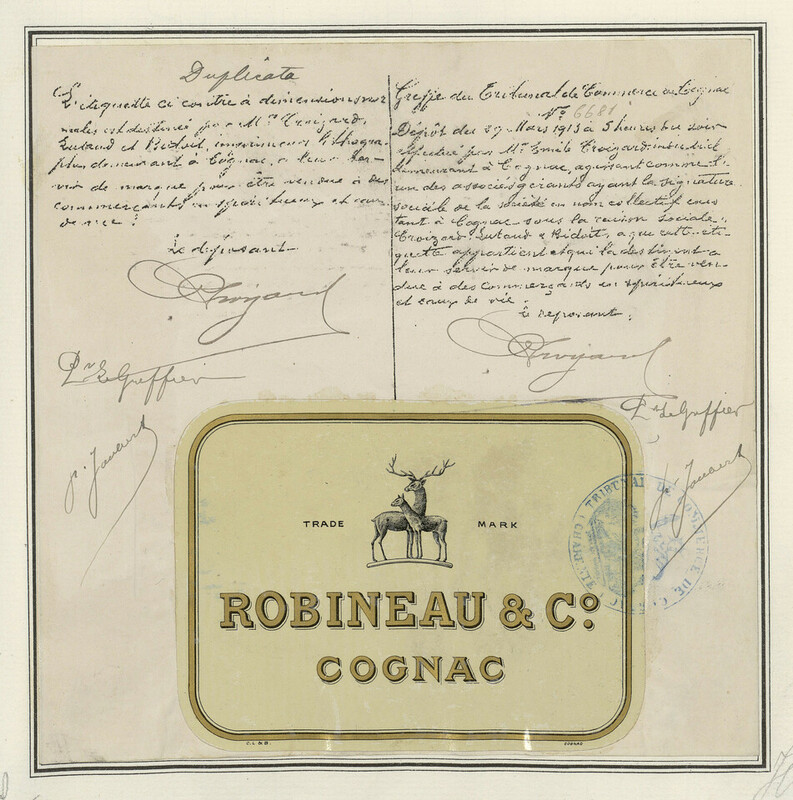 Duplicata
L'étiquette ci contre à dimensions nor
males est destinée par MM. Croizard,
Lutaud et Bidoit, imprimeurs lithogra-
phes demeurant à Cognac, à leur ser-
vir de marque pour être vendue à des
commerçants en spiritueux et eaux
de vie.
Le déposant
Croizard
Pr Le Greffier
Greffe du Tribunal de Commerce de Cognac
No 6681
Dépôt du 27 Mars 1913 à 5 heures du soir
effectué par Mr Emile Croizard industriel
demeurant à Cognac, agissant comme l'
un des associés gérants ayant la signature
sociale de la société en nom collectif exis
tant à Cognac sous la raison sociale:
Croizard, Lutaud & Bidoit, à qui cette éti-
quette appartient et qui la destinent à
leur servir de marque pour être ven-
due à des commerçants en spiritueux
et eaux de vie.
Le déposant,
Croizard
Pr Le Greffier
TRADE MARK
ROBINEAU & Co.
COGNAC
C.L & B. COGNAC
TRIBUNAL DE COMMERCE DE COGNAC